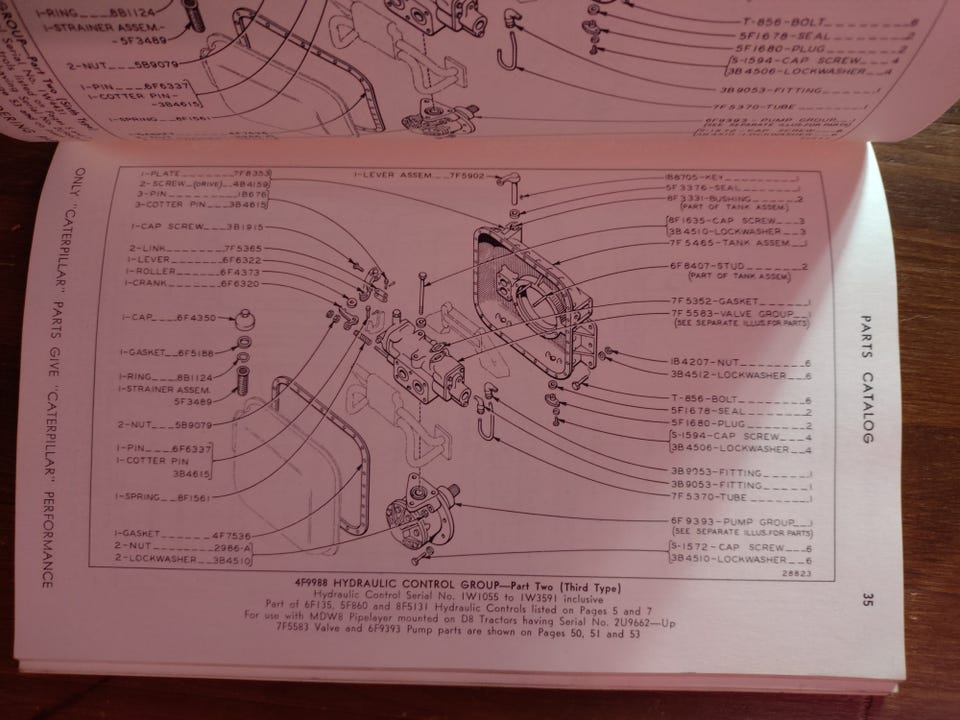 1-RING 8B1124
1-STRAINER ASSEM-
5F3489
2-NUT 5B9079
1-PIN 6F6337
1-COTTER PIN-
-3B4615
1-SPRING 8F1561
T-856-BOLT 6
5F1678-SEAL 2
5F1680-PLUG 2
S-1594-CAP SCREW 4
3B4506-LOCKWASHER 4
3B9053-FITTING 1
7F5370-TUBE 1
6F9393-PUMP GROUP 1
(SEE SEPARATE ILLUS. FOR PARTS)
S-1572-CAP SCREW 6
ONLY "CATERPILLAR" PARTS GIVE "CATERPILLAR" PERFORMANCE
1-PLATE 7F8353
2-SCREW (DRIVE) 4B4159
3-PIN 1B676
3-COTTER PIN 3B4615
1-CAP SCREW 3B1915
2-LINK 7F5365
1-LEVER 6F6322
1-ROLLER 6F4373
1-CRANK 6F6320
1-CAP 6F4350
1-GASKET 6F5188
1-RING 8B1124
1-STRAINER ASSEM.
5F3489
2-NUT 5B9079
1-PIN 6F6337
1-COTTER PIN
3B4615
1-SPRING 8F1561
1-GASKET 4F7536
2-NUT 2986-A
2-LOCKWASHER 3B4510
1-LEVER ASSEM. 7F5902
1B8705-KEY 1
5F3376-SEAL 1
8F3331-BUSHING 2
(PART OF TANK ASSEM)
8F1635-CAP SCREW 3
3B4510-LOCKWASHER 3
7F5465-TANK ASSEM 1
6F8407-STUD 2
(PART OF TANK ASSEM)
7F5352-GASKET 1
7F5583-VALVE GROUP 1
(SEE SEPARATE ILLUS. FOR PARTS)
1B4207-NUT 6
3B4512-LOCKWASHER 6
T-856-BOLT 6
5F1678-SEAL 2
5F1680-PLUG 2
S-1594-CAP SCREW 4
3B4506-LOCKWASHER 4
3B9053-FITTING 1
3B9053-FITTING 1
7F5370-TUBE 1
6F9393-PUMP GROUP 1
(SEE SEPARATE ILLUS. FOR PARTS)
S-1572-CAP SCREW 6
3B4510-LOCKWASHER 6
28823
4F9988 HYDRAULIC CONTROL GROUP—Part Two (Third Type)
Hydraulic Control Serial No. 1W1055 to 1W3591 inclusive
Part of 6F135, 5F860 and 8F5131 Hydraulic Controls listed on Pages 5 and 7
For use with MDW8 Pipelayer mounted on D8 Tractors having Serial No. 2U9662—Up
7F5583 Valve and 6F9393 Pump parts are shown on Pages 50, 51 and 53
PARTS CATALOG
35